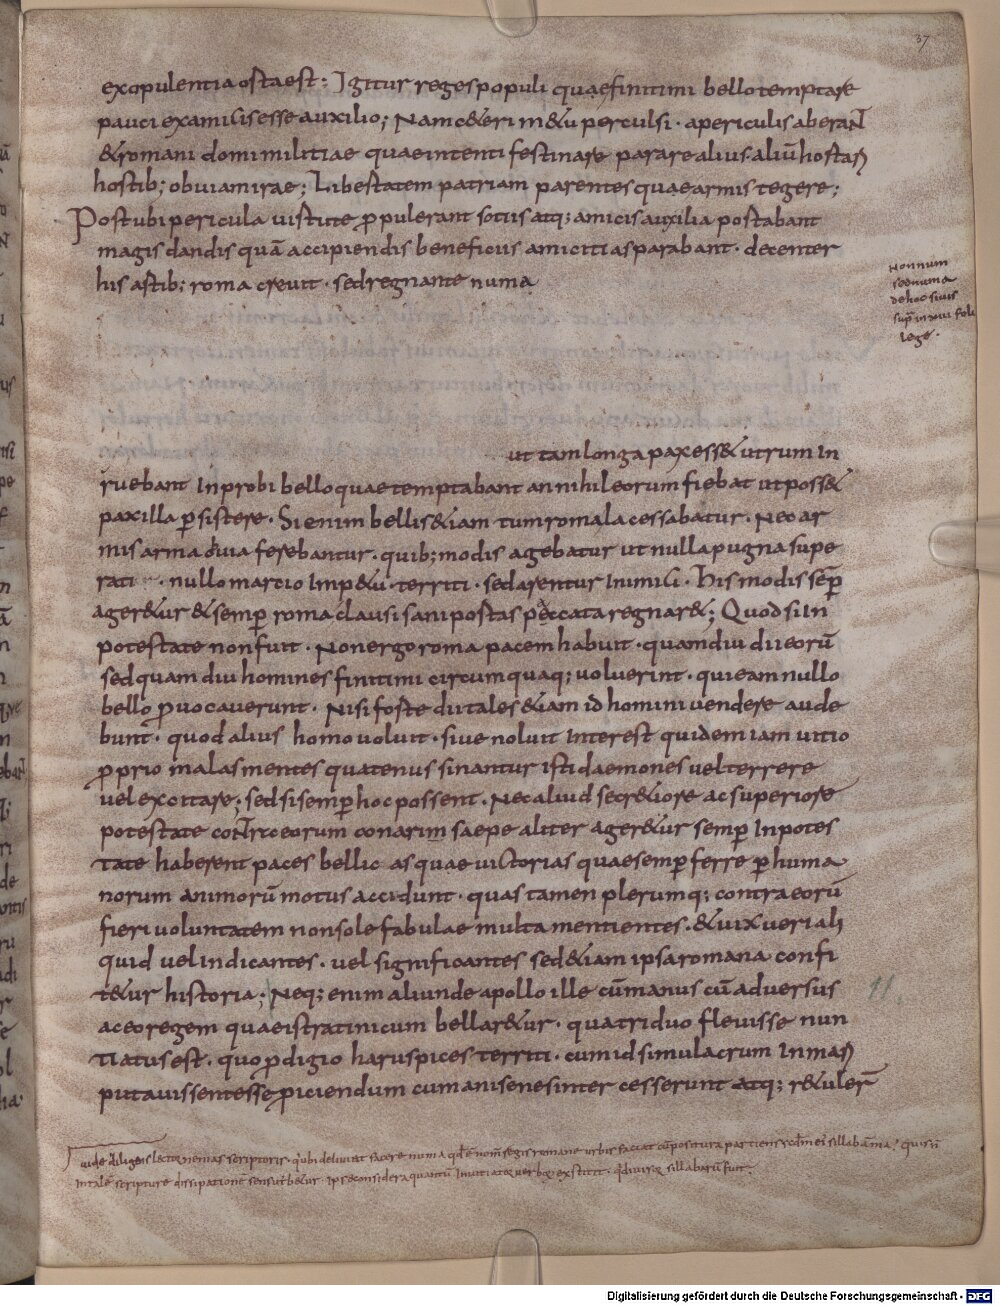 37
exopulentia orta est: Igitur reges populi quae finitimi bello temptare
pauci examicis esse auxilio; Nam c&eri m&u perculsi · apericulis aberaNT
&romani domi militiae quae intenti festinare parare alius aliū hortari
hostib; obviam irae; Libertatem patriam parentes quae armis tegere;
Post ubi pericula virtute ꝓpulerant sociis atq; amicis auxilia portabant
magis dandis quā accipiendis beneficiis amicitias parabant · decenter
his artib; roma crevit · sed regnante numa
Non num
sed numa
de hoc
sup in xviii foli
lege ·
ut tam longa pax ess& utrum In
ruebant Inprobi bello quae temptabant an nihil eorum fiebat ut poss&
pax illa ꝑsistere · Si enim bellis &iam tum roma lacessabatur · Nec ar
mis arma obvia ferebantur · quib; modis agebatur ut nulla pugna supe
rati · nullo martio Imp&u territi · sedarentur Inimici · His modis semꝑ
ager&ur &semꝑ roma clausi sani portas peccata regnar&; Quod si In
potestate non fuit · Non ergo roma pacem habuit · quamdiu dii eorū
sed quam diu homines finitimi circum quaq; voluerint · qui eam nullo
bello ꝓvocaverunt · Nisi forte dii tales &iam id homini vendere aude
bunt · quod alius homo voluit · sive noluit Interest quidem iam vitio
ꝓprio malas mentes quatenus sinantur isti daemones vel terrere
vel excitare; sed si semꝑ hoc possent · Nec aliud secr&iore ac superiore
potestate coNtra eorum conarim saepe aliter ager&ur semꝑ Inpotes
tate haberent paces bellic as quae victorias quae semꝑ ferre ꝑ huma
norum animorū motus accidunt · quas tamen plerumq; contra eorū
fieri voluntatem non sole fabulae multa mentientes · &vix veri ali
quid vel indicantes · vel significantes sed &iam ipsa romana confi
t&ur historia; Neq; enim aliunde apollo ille cūmanus cū adversus
aceo regem quae istratinicum bellar&ur · quatriduo flevisse nun
11.
tiatus est · quo ꝓdigio haruspices territi · cum id simulacrum In mari
putavissent esse ꝓiciendum cumani senes inter cesserunt atq; r&uler̄